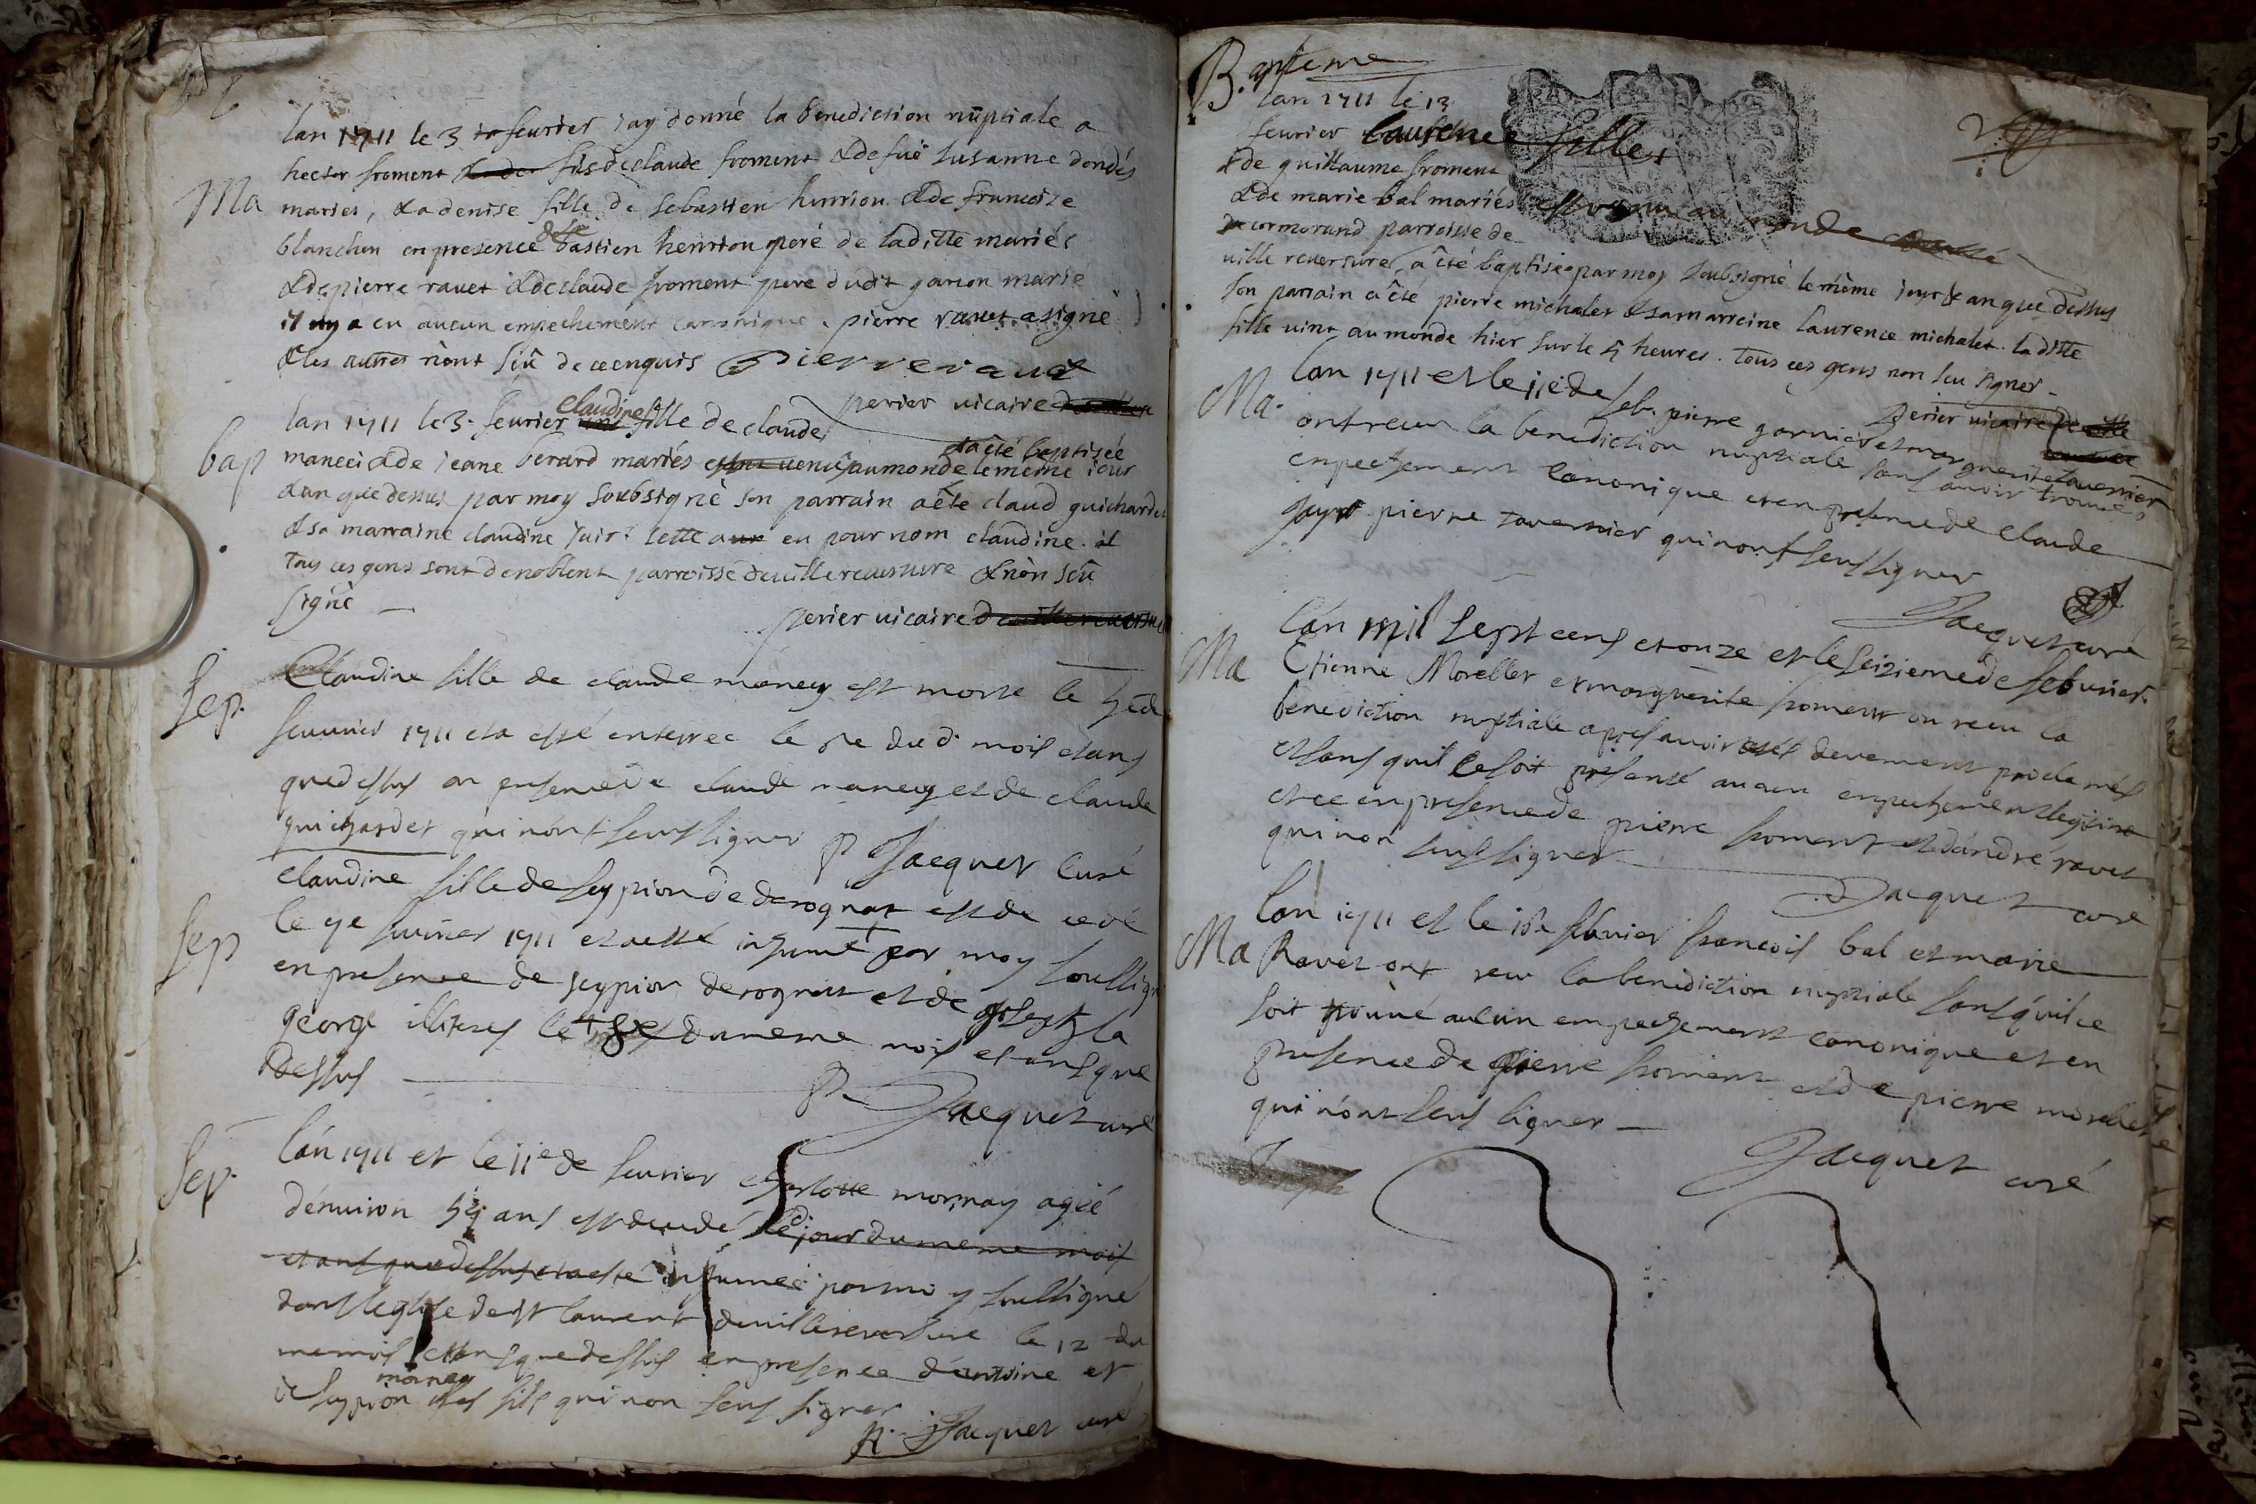 Ma
lan 1711 le 3 feurier jay donné la benediction nuptiale a
hector froment fils de claude froment & de fuë susanne dondés
mariés, & a denise fille de sebastien henriou & de francoize
blanchon en presence de bastien henriou peré de laditte mariés
& de pierre rauet & de claude froment pere dudit garcon marié
il ny a eu aucun empechement canonique. pierre rauet a signé
& les autres n'ont sçû de ce enquis Pierre rauet
perier uicaire
bap
lan 1711 le 3. feurier claudine fille de claude
maneci & de jeane berard mariés est venuë au monde & a été baptisée le même jour
& an que dessus par moy soubsigné son parrain a été claud guichardet
& sa marraine claudine cette a eu pour nom claudine. il
tous ces gens sont de noblent parroisse de uillereuersure & n'on sçû
signé
perier uicaire de uillereuersure
sep.
Claudine fille de claude manecy est morte le 5e de
feuurier 1711 et a esté enterrée le du d. mois et ans
que dessus en presence de claude manecy et de claude
guichardet qui n'ont seus signer P Jacquet Curé
sep
claudine fille de scypion de derognat est de cedé
le 7e feurier 1711 et a esté inhumé par moy soussigné
en presence de scypion derognat et de joseph la
george illiteres le 8 du meme mois et ans que
dessus
P. Jacquet curé
sep.
lán 1711 et le 11e de feurier charlotte mornay agéé
dénuiron ans est decedé le jour du meme mois
et ans que dessus et a esté inhumée par moy soussigné
dans leglise de st laurent de uillereuersure le 12 du
me mois et ans que dessus en presence d'antoine et
de scypion maney ses fils qui non seus signer
P. Jacquet curé
Bapteme
lan 1711 le 13
feurier laurence fille
& de guillaume froment
& de marie bal mariés est venu au monde
de cormorand parroisse de
uille reuersure, a été baptisée par moy soubsigné le même jour & an que dessus
son parrain a été pierre michalet & sa marreine laurence michalet. la ditte
fille uint au monde hier sur le 5 heures. tous ces gens non sçu signer
perier uicaire
Ma.
lan 1711 et le 11e de feb. pierre garnier et marguerite tauernier
ont receu la benediction nuptiale sans auoir trouués
empechement canonique et en presence de claude
Jayr pierre tauernier qui nont seus signer
Jacquet curé
Ma
lán mil sept cens et onze et le seizieme de feburier.
Etienne Morellet et marguerite froment on receu la
benediction nuptiale apres auoir estés deuement proclamés
et sans quil ce soit presenté aucun empechement legitime
et ce en presence de pierre froment et dándré rauet
qui non seus signer
Jacquet curé
Ma
lan 1711 et le 16e feurier francois bal et marie
Rauet ont receu la benediction nuptiale sans quil ce
soit trouué aucun empechement canonique et en
presence de pierre froment et de pierre morellet
qui n'ont seus signer
Jacquet curé